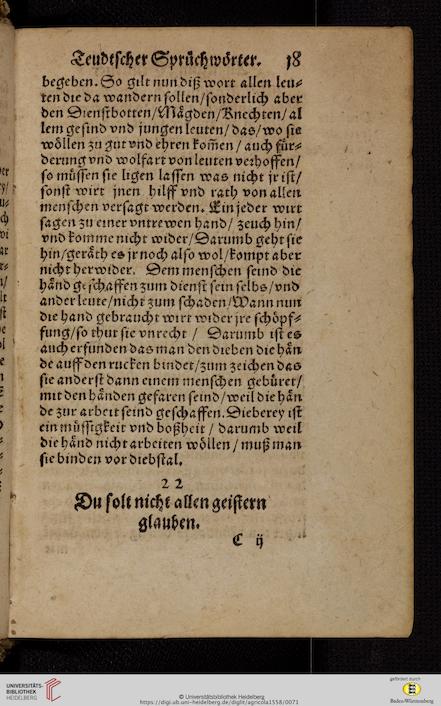 Teudtscher Sprüchwörter. 18
begeben. So gilt nun diß wort allen leu-
ten die da wandern sollen/sonderlich aber
den Dienstbotten/Mägden/Knechten/al
lem gesind vnd jungen leuten/das/wo sie
wöllen zu gut vnd ehren kom̃en/auch für-
derung vnd wolfart von leuten verhoffen/
so müssen sie ligen lassen was nicht jr ist/
sonst wirt jnen hilff vnd rath von allen
menschen versagt werden. Ein jeder wirt
sagen zu einer vntrewen hand/ zeuch hin/
vnd komme nicht wider/Darumb geht sie
hin/geräth es jr noch also wol/kompt aber
nicht herwider. Dem menschen seind die
händ geschaffen zum dienst sein selbs/vnd
ander leute/nicht zum schaden/Wann nun
die hand gebraucht wirt wider jre schöpf-
fung/so thut sie vnrecht / Darumb ist es
auch erfunden das man den dieben die hän
de auff den rucken bindet/zum zeichen das
sie anderst dann einem menschen gebüret/
mit den händen gefaren seind/weil die hän
de zur arbeit seind geschaffen. Dieberey ist
ein müssigkeit vnd boßheit / darumb weil
die händ nicht arbeiten wöllen/ muß man
sie binden vor diebstal.
22
Du solt nicht allen geistern
glauben.
C ij
UNIVERSITÄTS-
BIBLIOTHEK
HEIDELBERG
© Universitätsbibliothek Heidelberg
https://digi.ub.uni-heidelberg.de/diglit/agricola1558/0071
gefördert durch
Baden-Württemberg